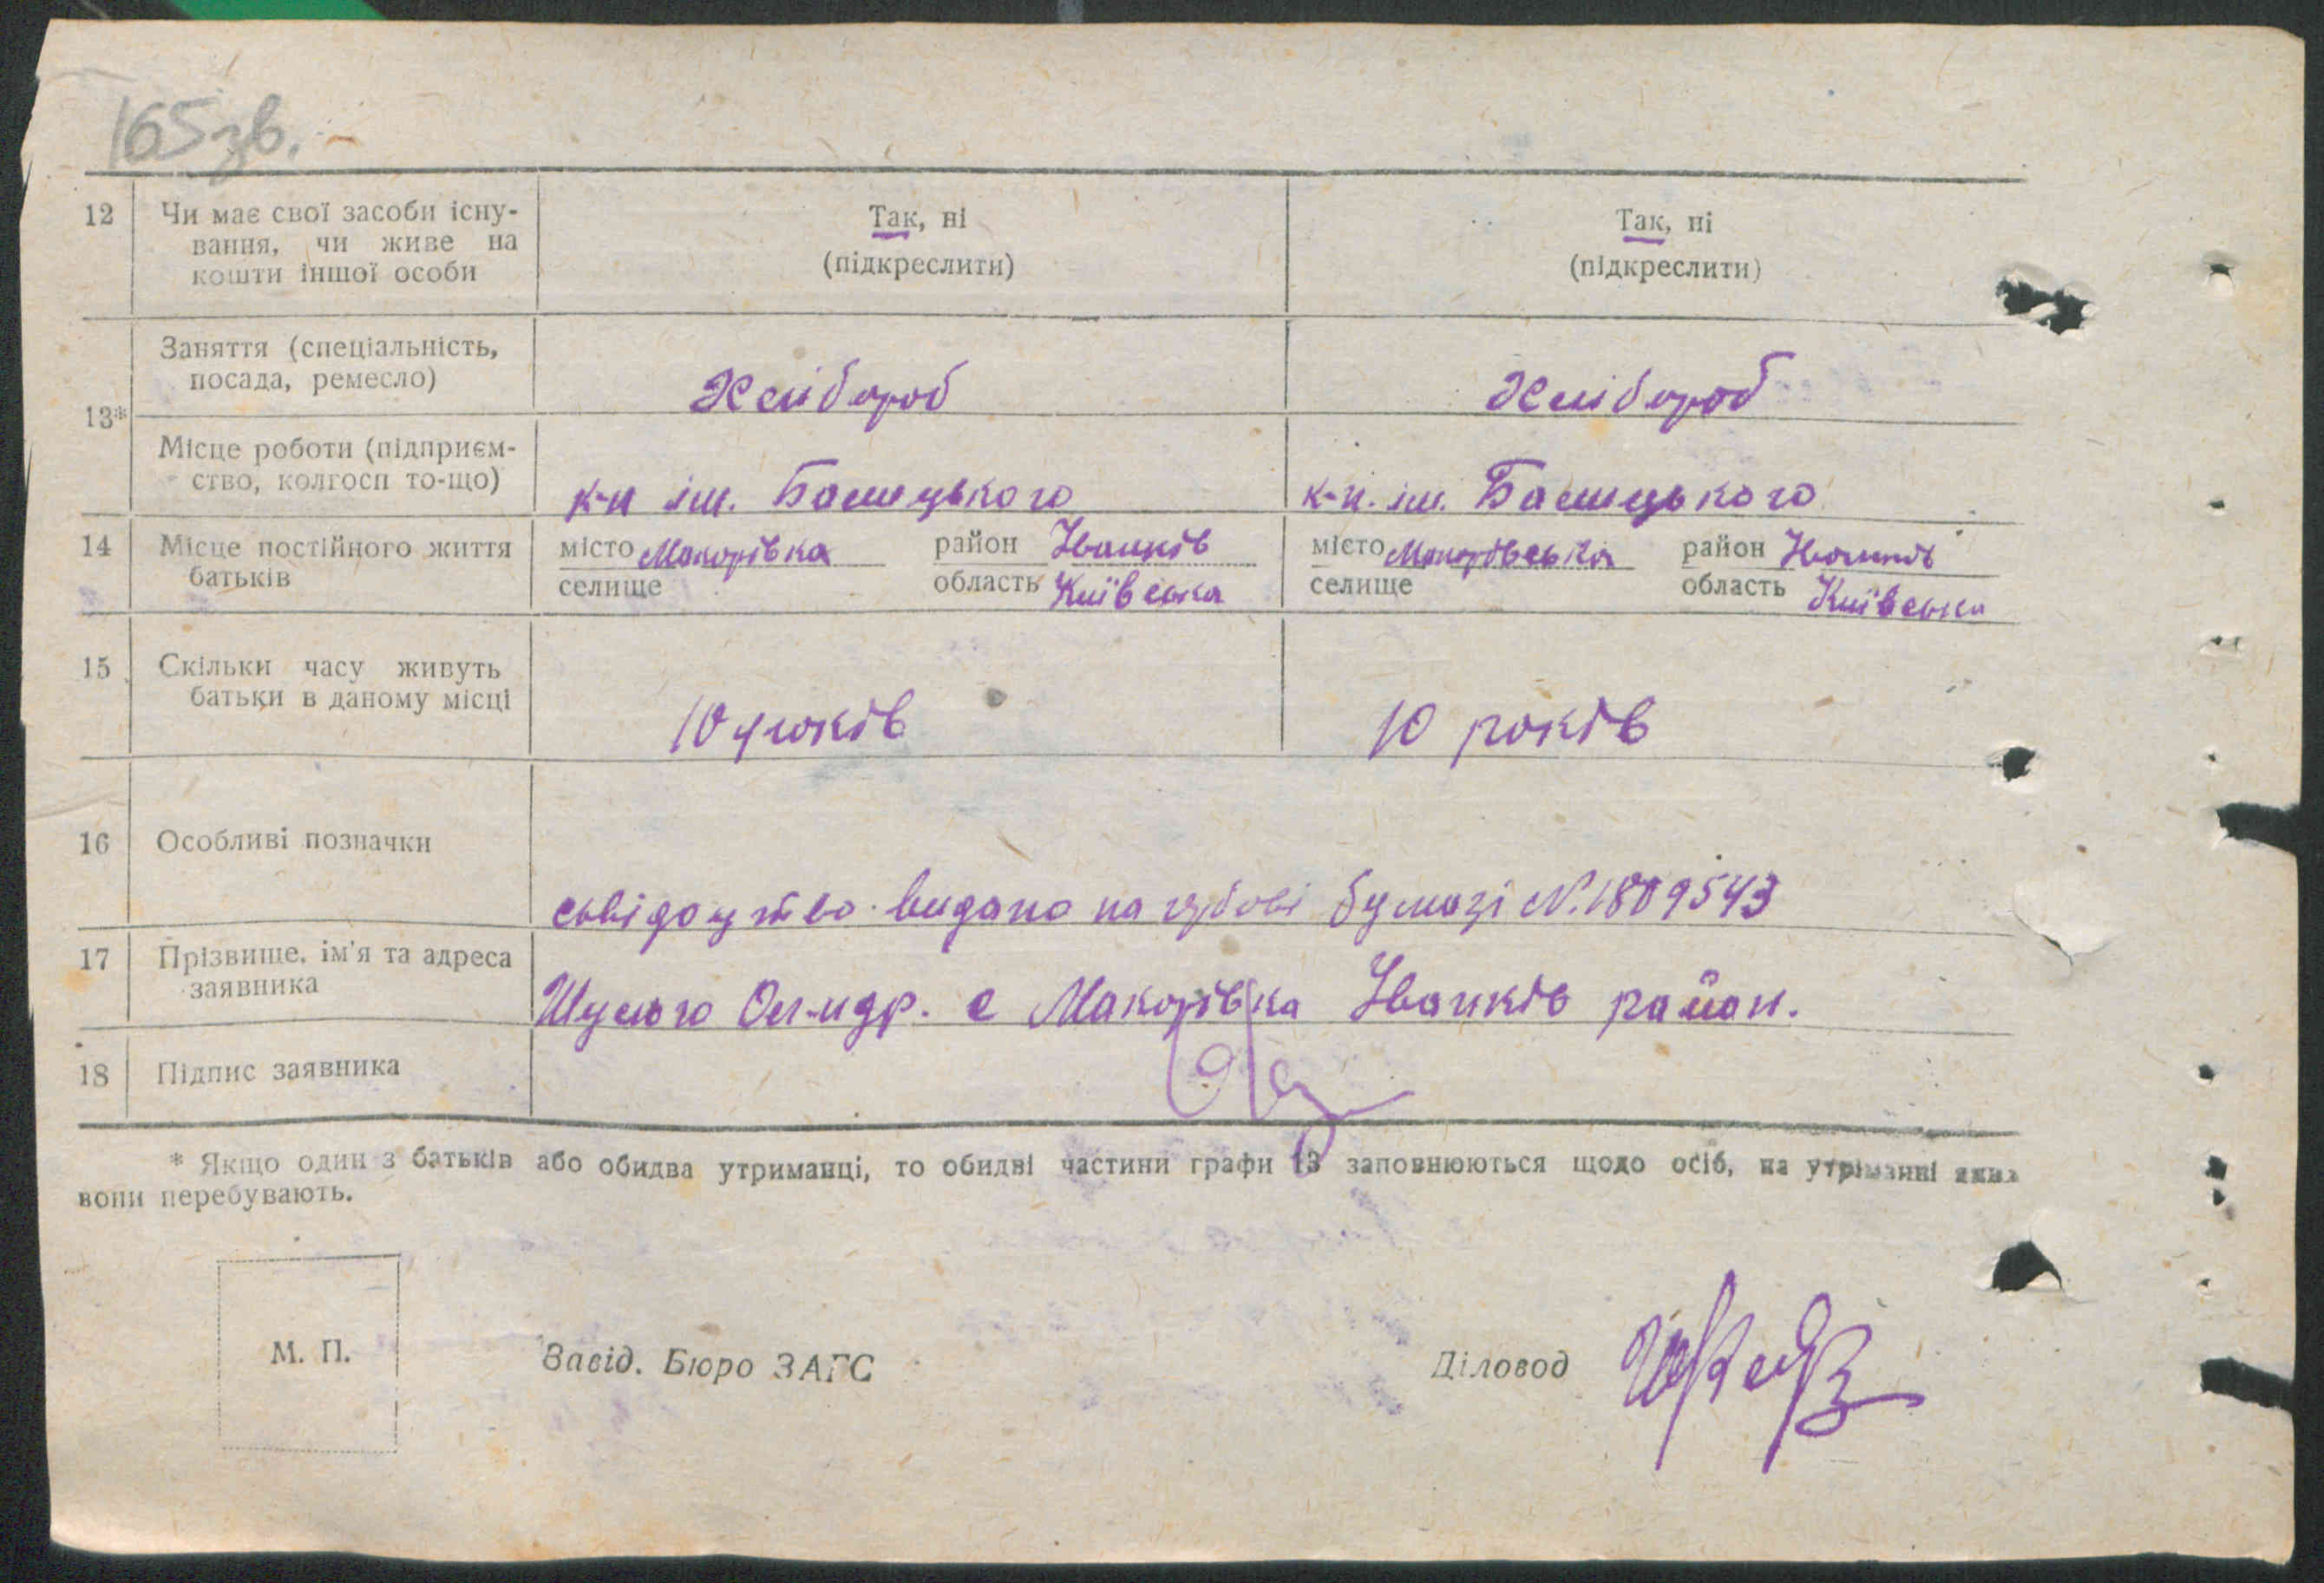 165зв.
12 Чи має свої засоби існу- Так, ні Так, ні
вання, чи живе на (підкреслити) (підкреслити)
кошти іншої особи
13* Заняття (спеціальність, Хлібороб Хлібороб
посада, ремесло)
Місце роботи (підприєм- к-п ім. к-п. ім.
ство, колгосп то-що)
14 Місце постійного життя місто Макорівка район Іванків місто район Іванків
батьків селище область Київська селище область Київська
15 Скільки часу живуть 10 років 10 років
батьки в даному місці
16 Особливі позначки
видано на бумазі №.1809543
17 Прізвище, ім'я та адреса
заявника с Макорівка Іванків район.
18 Підпис заявника
* Якщо один з батьків або обидва утриманці, то обидві частини графи 13 заповнюються щодо осіб, на утріманні яких
вони перебувають.
М. П. Завід. Бюро ЗАГС Діловод